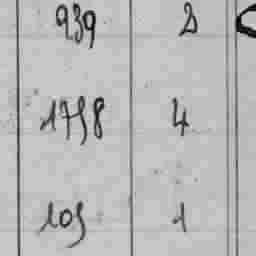 939 2
1798 4
105 1